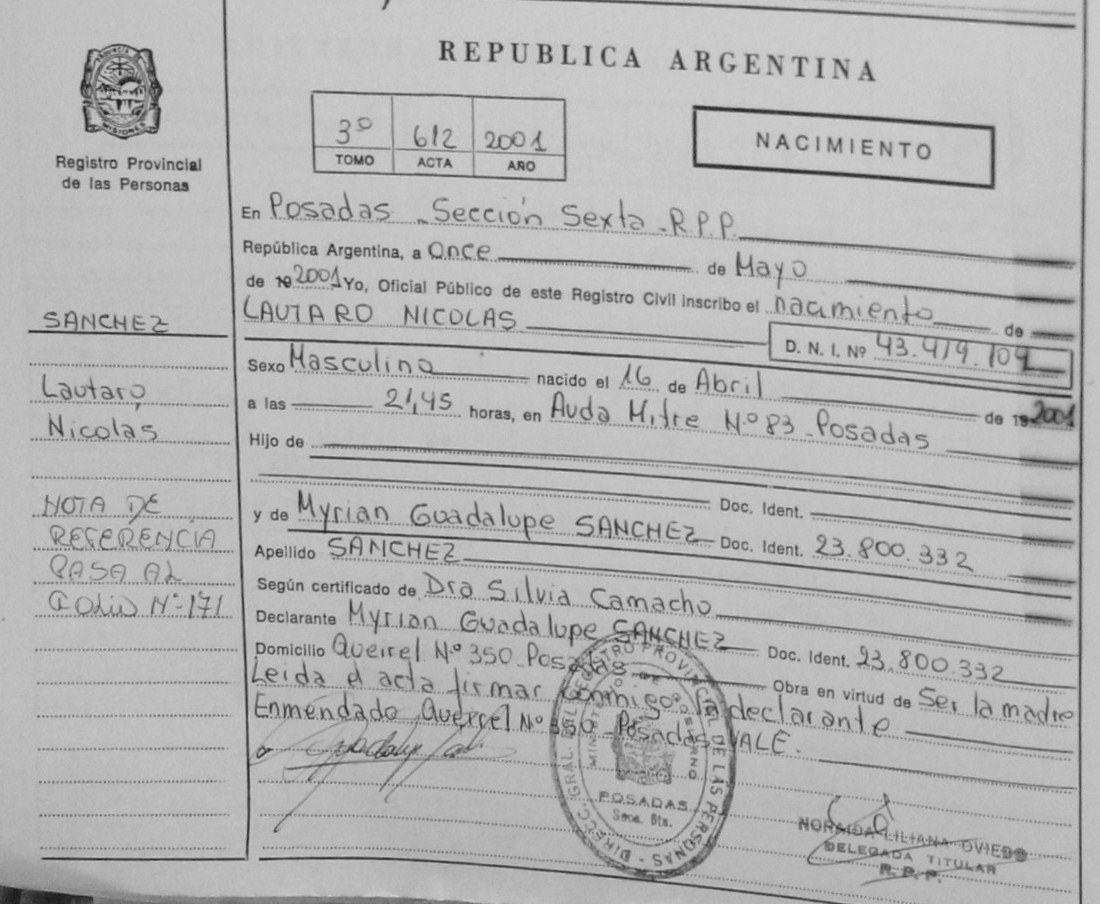 REPUBLICA ARGENTINA
MISIONES
Registro Provincial
de las Personas
3º 612 2001
TOMO ACTA AÑO
NACIMIENTO
En Posadas - Sección Sexta - R.P.P.
República Argentina, a Once de Mayo
de 19 2001 Yo, Oficial Público de este Registro Civil inscribo el nacimiento de
LAUTARO NICOLAS
D. N. I. Nº 43.419.104
Sexo Masculino nacido el 16 de Abril de 19 2001
a las 21,45 horas, en Avda Mitre Nº 83 - Posadas
Hijo de
Doc. Ident.
y de Myrian Guadalupe SANCHEZ Doc. Ident. 23.800.332
Apellido SANCHEZ
Según certificado de Dra Silvia Camacho
Declarante Myrian Guadalupe SANCHEZ Doc. Ident. 23.800.332
Domicilio Queirel Nº 350 - Posadas Obra en virtud de Ser la madre
Leida el acta firmar conmigo la declarante
Enmendado Queirel Nº 350 - Posadas VALE.
SANCHEZ
Lautaro
Nicolas
NOTA DE
REFERENCIA
PASA AL
FOLIO Nº 171
DIRECC. GRAL. REGISTRO PROVINCIAL DE LAS PERSONAS
MINISTERIO DE GOBIERNO
POSADAS
Secc. 6ta.
NORAIDA LILIANA OVIEDO
DELEGADA TITULAR
R. P. P.